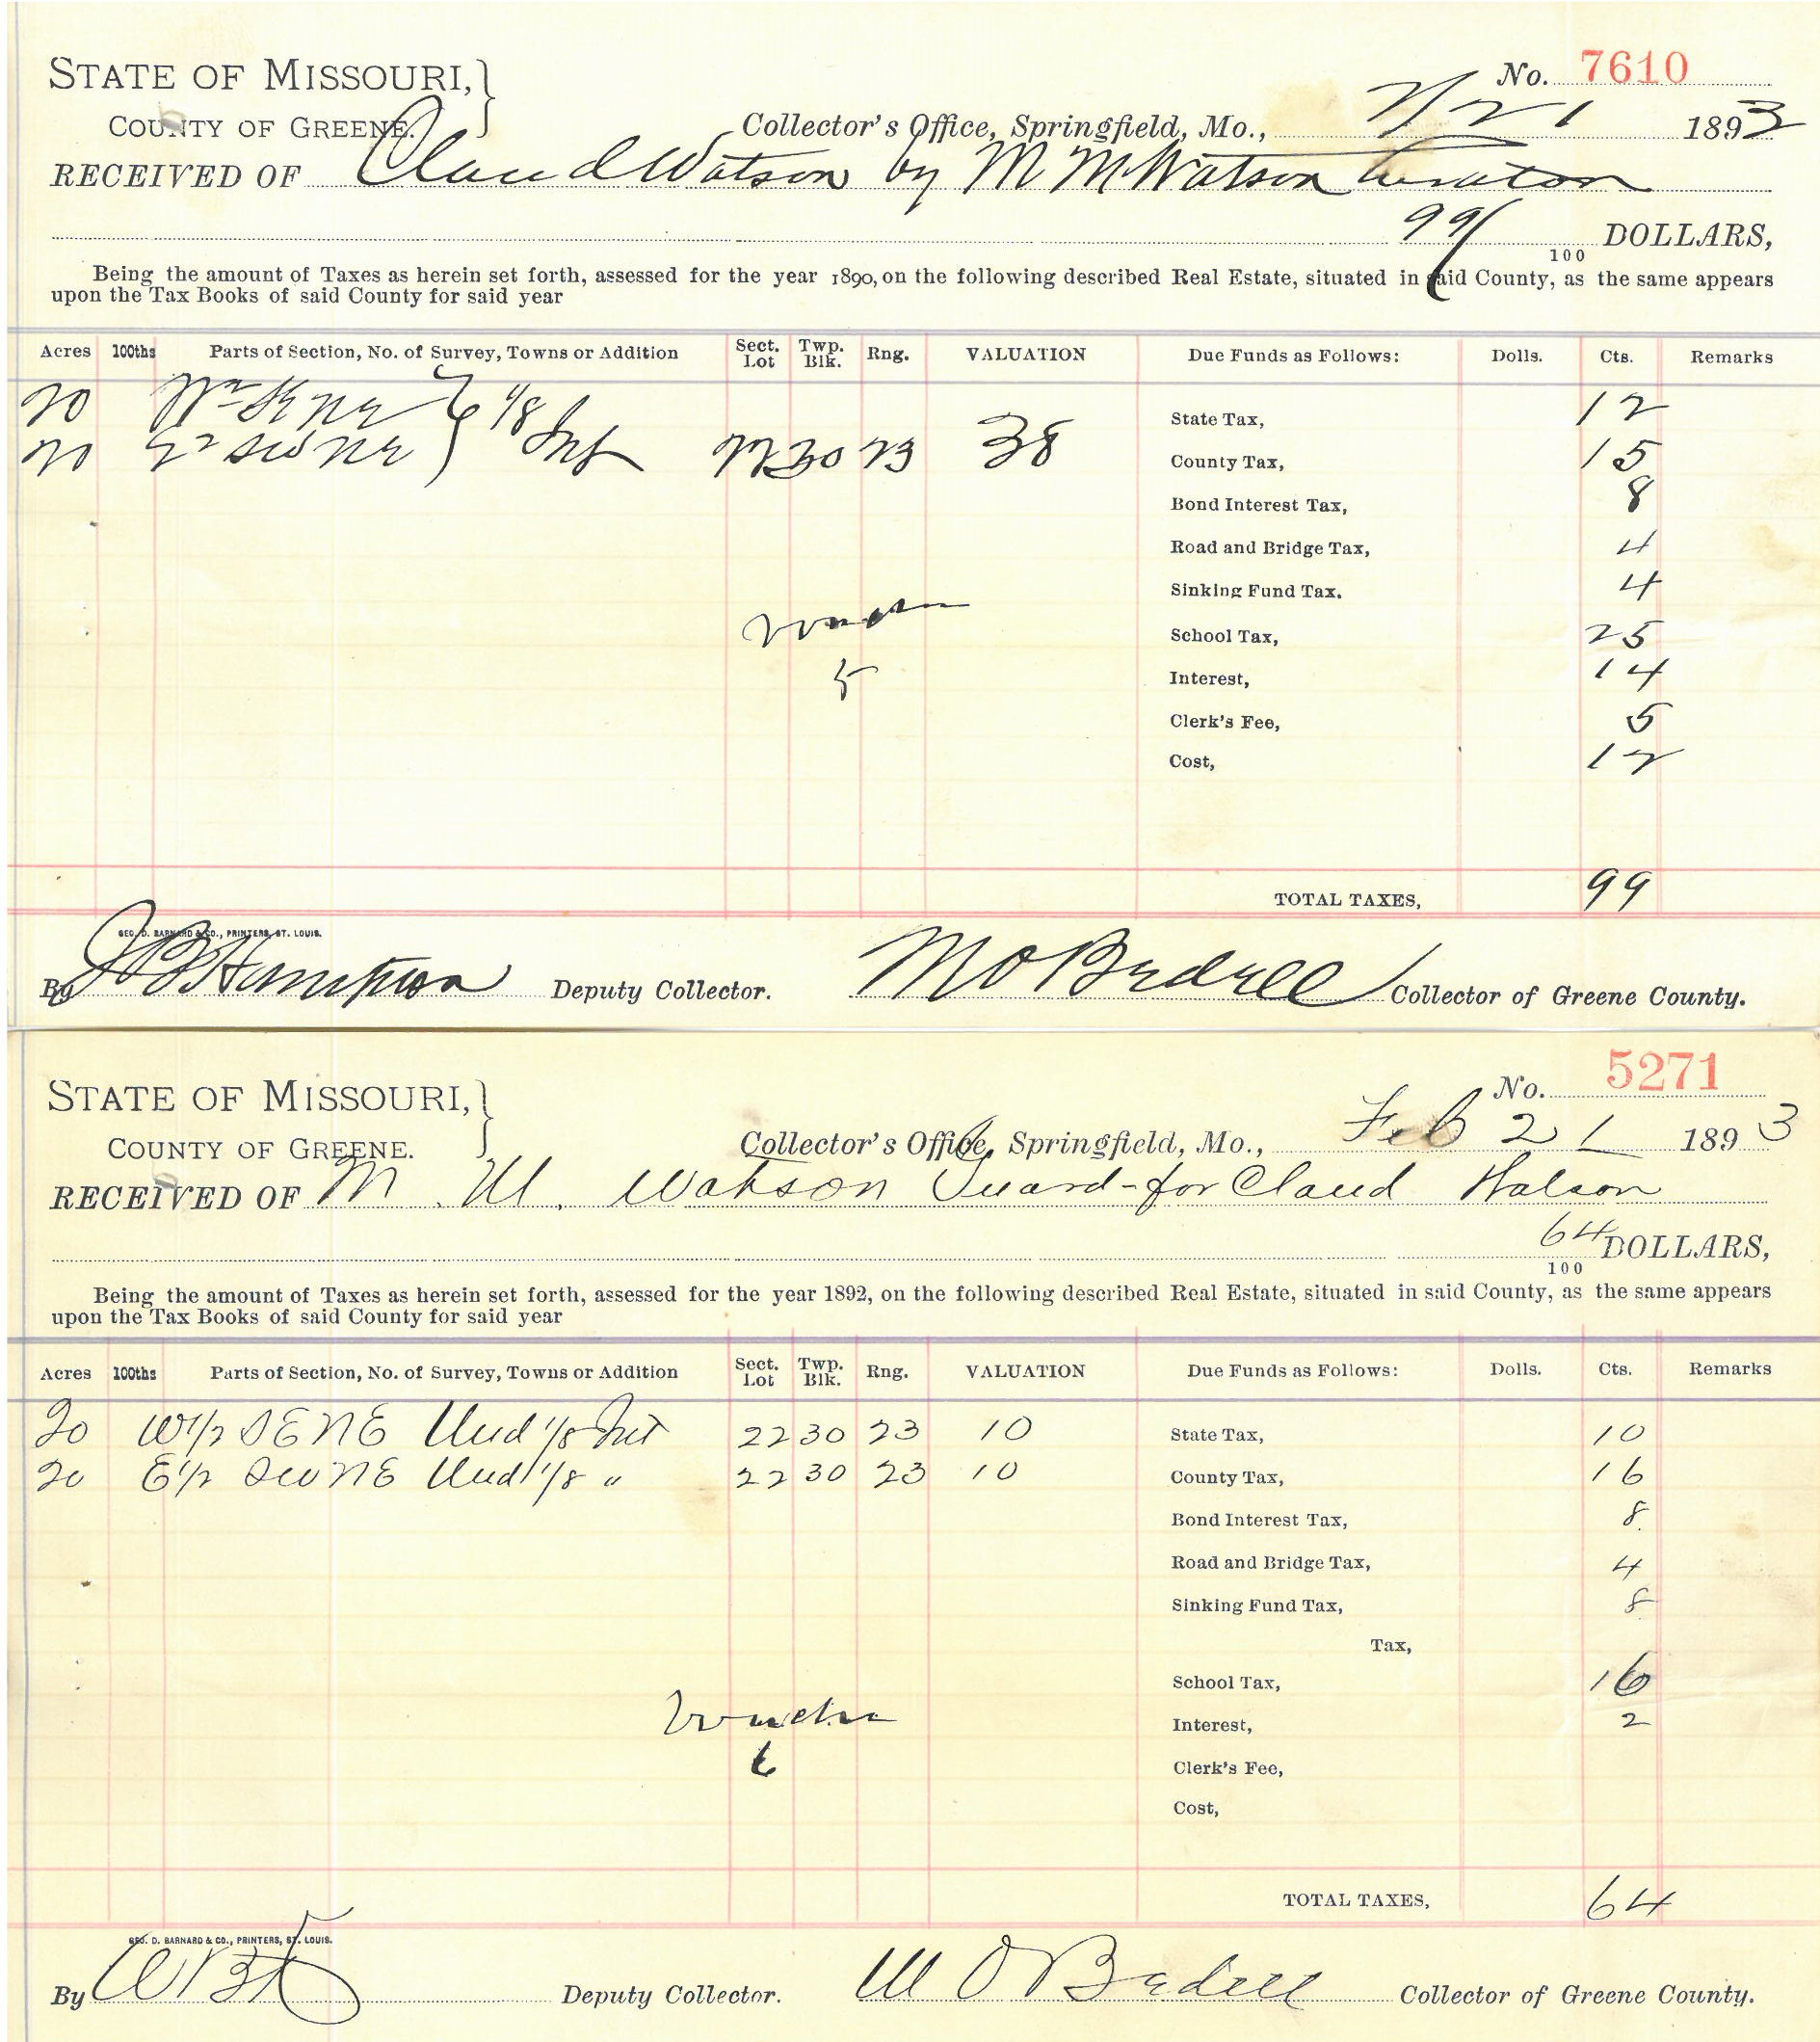 STATE OF MISSOURI, }
COUNTY OF GREENE.
No. 7610
Collector's Office, Springfield, Mo., 2/21 1893
RECEIVED OF Claud Watson by M M Watson Curator
99/100 DOLLARS,
Being the amount of Taxes as herein set forth, assessed for the year 1890, on the following described Real Estate, situated in said County, as the same appears
upon the Tax Books of said County for said year
Acres 100ths Parts of Section, No. of Survey, Towns or Addition Sect. Lot Twp. Blk. Rng. VALUATION Due Funds as Follows: Dolls. Cts. Remarks
20 W½ SE NE } 1/8 State Tax, 12
20 E½ SW NE } Int 22 30 23 38 County Tax, 15
Bond Interest Tax, 8
Road and Bridge Tax, 4
Sinking Fund Tax. 4
Voucher School Tax, 25
5 Interest, 14
Clerk's Fee, 5
Cost, 12
TOTAL TAXES, 99
GEO. D. BARNARD & CO., PRINTERS, ST. LOUIS.
By Deputy Collector. M O Bedell Collector of Greene County.
STATE OF MISSOURI, }
COUNTY OF GREENE.
No. 5271
Collector's Office, Springfield, Mo., Feb 21 1893
RECEIVED OF M. M. Watson Guard-for Claud Watson
64/100 DOLLARS,
Being the amount of Taxes as herein set forth, assessed for the year 1892, on the following described Real Estate, situated in said County, as the same appears
upon the Tax Books of said County for said year
Acres 100ths Parts of Section, No. of Survey, Towns or Addition Sect. Lot Twp. Blk. Rng. VALUATION Due Funds as Follows: Dolls. Cts. Remarks
20 W1/2 SE NE Und 1/8 Int 22 30 23 10 State Tax, 10
20 E1/2 SW NE Und 1/8 " 22 30 23 10 County Tax, 16
Bond Interest Tax, 8
Road and Bridge Tax, 4
Sinking Fund Tax, 8
Tax,
School Tax, 16
Voucher Interest, 2
6 Clerk's Fee,
Cost,
TOTAL TAXES, 64
GEO. D. BARNARD & CO., PRINTERS, ST. LOUIS.
By Deputy Collector. M O Bedell Collector of Greene County.